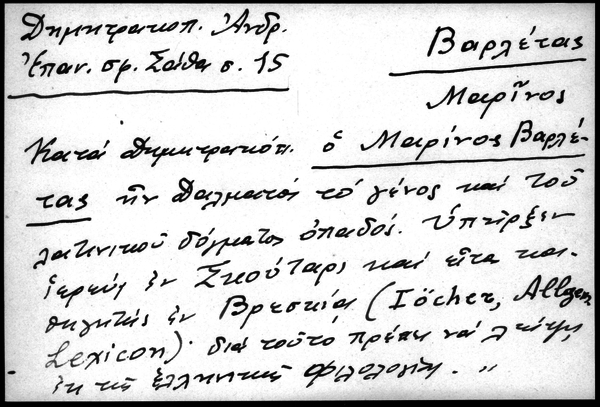 Δημητρακοπ. Ἀνδρ.
Ἐπαν. σφ. Σάθα σ. 15
Βαρλέτας
Μαρῖνος
Κατά Δημητρακόπ. ὁ Μαρίνος Βαρλέ-
τας ἦν Δαλμάτης τό γένος καί τοῦ
λατινικοῦ δόγματος ὀπαδός. Ὑπῆρξεν
ἱερεύς ἐν Σκούταρι καί εἶτα κα-
θηγητής ἐν Βρεσκίᾳ (Iöcher, Allgem
Lexicon). διά τοῦτο πρέπει νά λείψῃ
ἐκ τῆς ἑλληνικῆς φιλολογίας. „